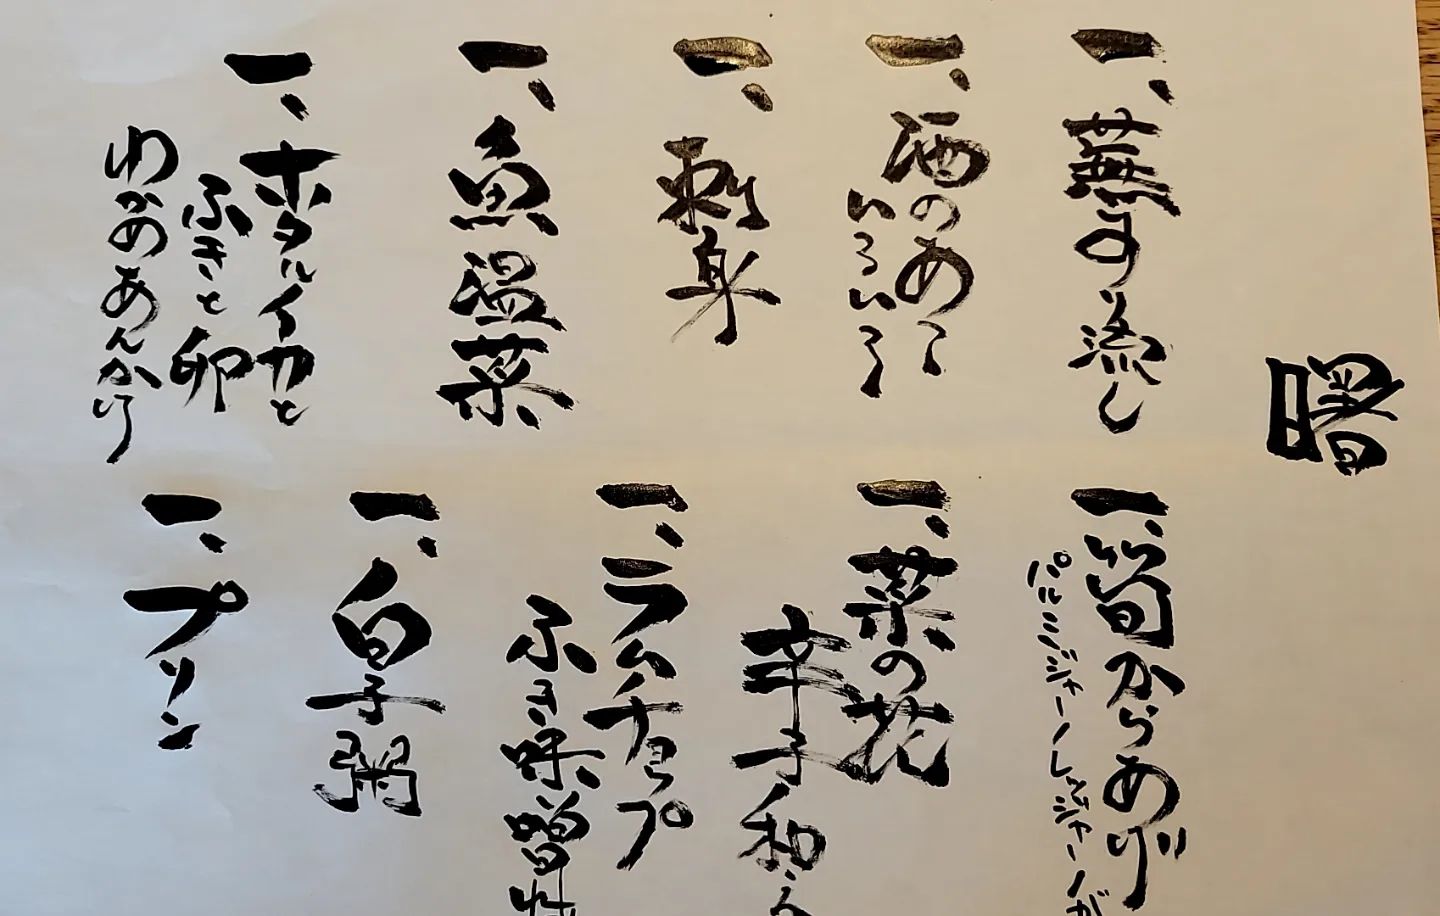 曙
一、蕪すり流し
一、酒のあて
いろいろ
一、刺身
一、魚温菜
一、ホタルイカと
ふきと卵
わかめあんかけ
一、筍からあげ
パルミジャーノレッジャーノが
一、菜の花
辛子和え
一、ラムチョップ
ふき味噌
一、白子粥
一、プリン